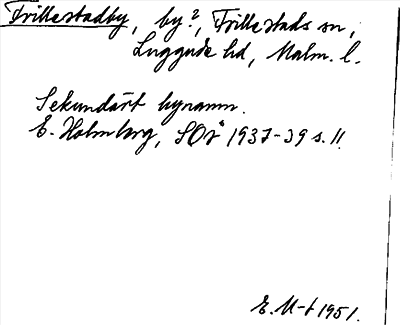 Frillestadby, by?, Frillestads sn,
Luggude hd, Malm. l.
Sekundärt bynamn.
E. Holmberg, SOÅ 1937-39 s. 11.
E. M-t 1951.